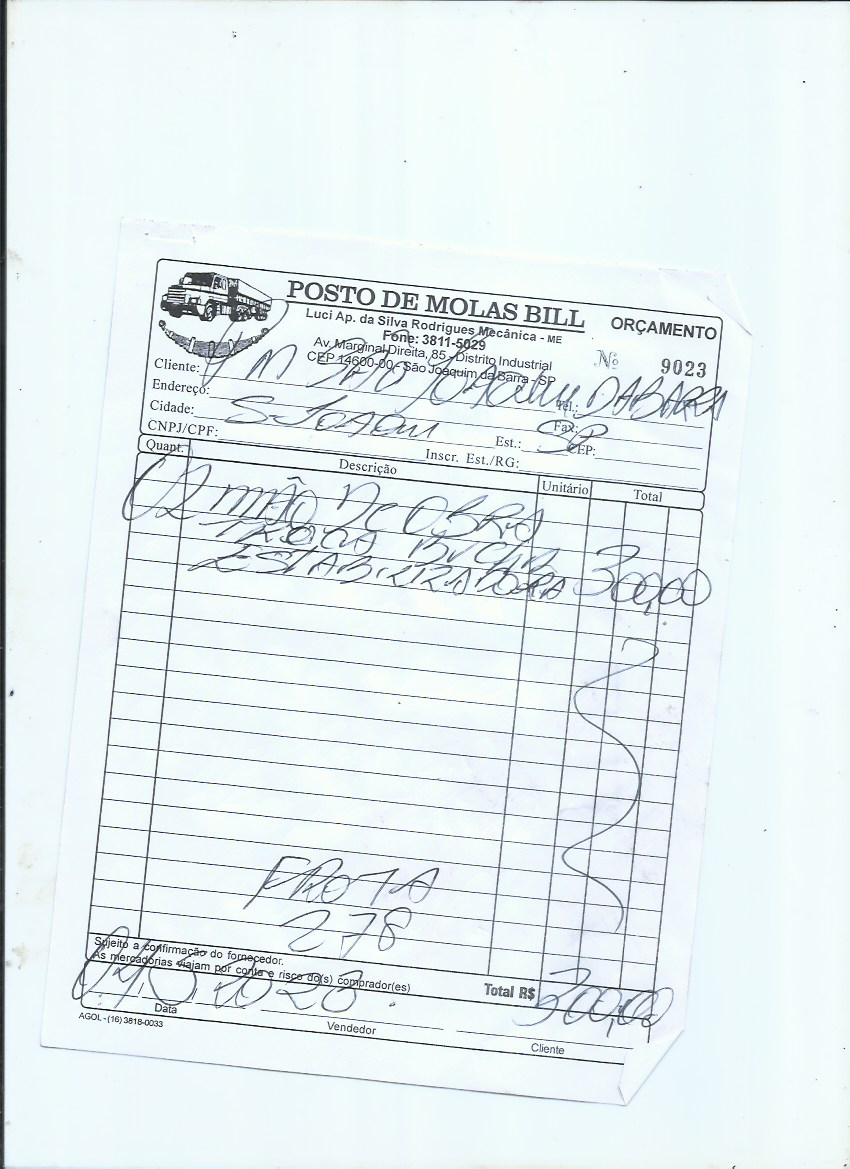 POSTO DE MOLAS BILL
ORÇAMENTO
Luci Ap. da Silva Rodrigues Mecânica - ME
Fone: 3811-5029
Av. Marginal Direita, 85 - Distrito Industrial
CEP 14600-00 - São Joaquim da Barra - SP
Nº 9023
Cliente: P M São Joaquim DA BARRA
Endereço: Tel.:
Cidade: S. Joaqui Est.: SP Fax: CEP:
CNPJ/CPF: Inscr. Est./RG:
Quant. Descrição Unitário Total
02 MÃO DE OBRA
TROCA BUCHA
ESTABILIZADORA 300,00
FROTA
278
Sujeito a confirmação do fornecedor.
As mercadorias viajam por conta e risco do(s) comprador(es)
Total R$ 300,00
2023
Data Vendedor Cliente
AGOL - (16) 3818-0033